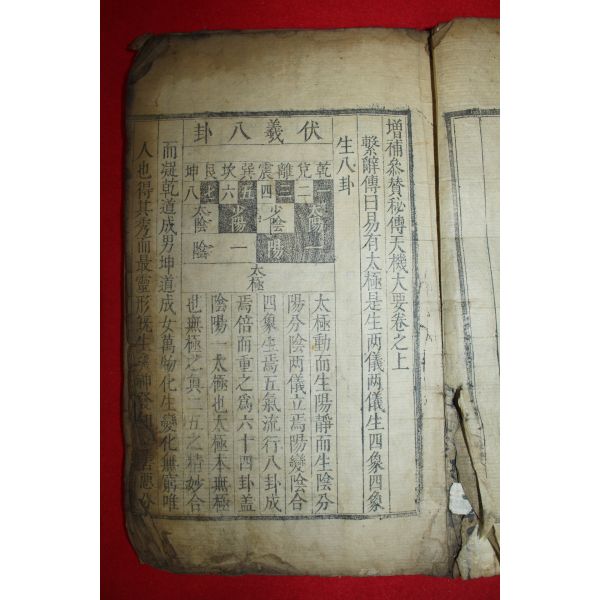 增補參贊秘傳天機大要卷之上
繫辭傳曰易有太極是生两儀两儀生四象四象
生八卦
伏羲八卦
乾兌離震巽坎艮坤
一二三四五六七八
太陽 少陰 少陽 太陰
陽 陰
太極
太極動而生陽靜而生陰分
陽分陰两儀立焉陽變陰合
四象生焉五氣流行八卦成
焉倍而重之爲六十四卦盖
陰陽一太極也太極本無極
也無極之真二五之精妙合
而凝乾道成男坤道成女萬物化生變化無窮唯
人也得其秀而最靈形旣生矣神發知善惡分